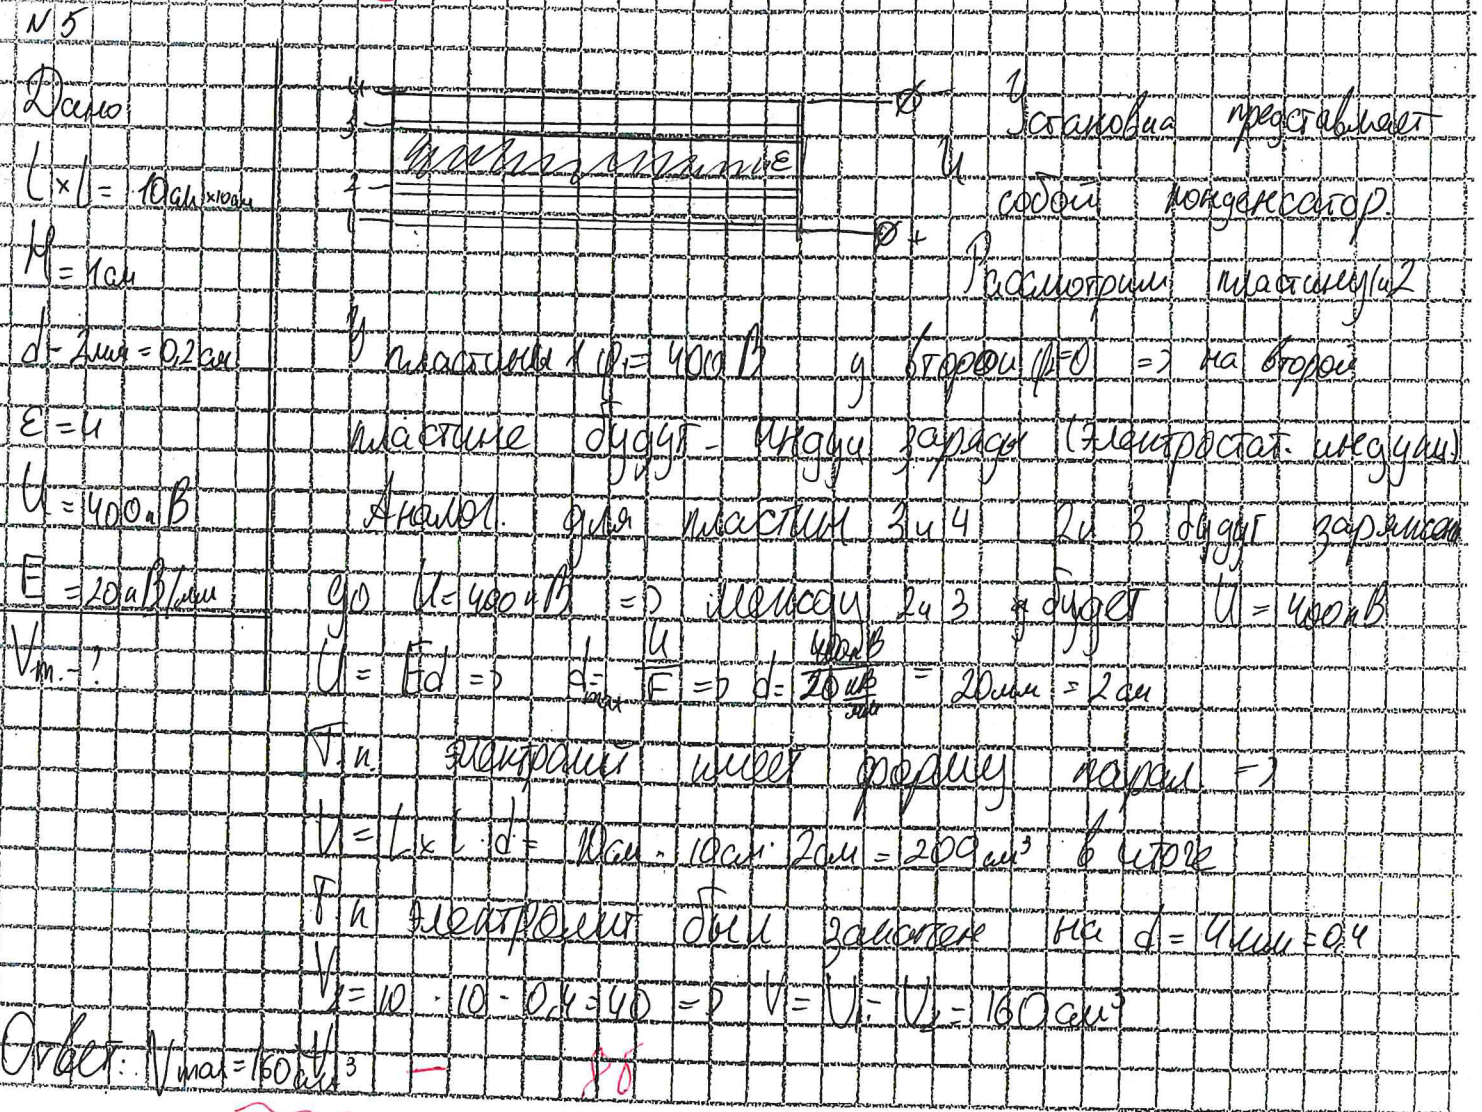 N 5
Дано
L × L = 10см × 10см
H = 1см
d = 2мм = 0,2см
ε = 4
U = 400кВ
E = 20кВ/мм
Vm. - ?
4
3
2
1
ε
U
+
Установка представляет
собой конденсатор.
Рассмотрим пластину 1и2
У пластины 1 φ₁ = 400В у второй φ=0 => на второй
пластине будут индуц заряды (электростат. индукц.)
Аналог. для пластин 3 и 4 2и 3 будут заряжены
до U=400кВ => между 2и 3 будет U = 400кВ
U = Ed => dmax = U/E => d = 400кВ / 20 кВ/мм = 20мм = 2см
Т.к. имеет форму парал =>
V = L×L·d = 10см · 10см · 2см = 200см³ в итоге
Т к электролит был на d = 4мм = 0,4
V₂ = 10 · 10 · 0,4 = 40 => V = V₁ - V₂ = 160см³
Ответ: Vmax = 160см³
– 8б